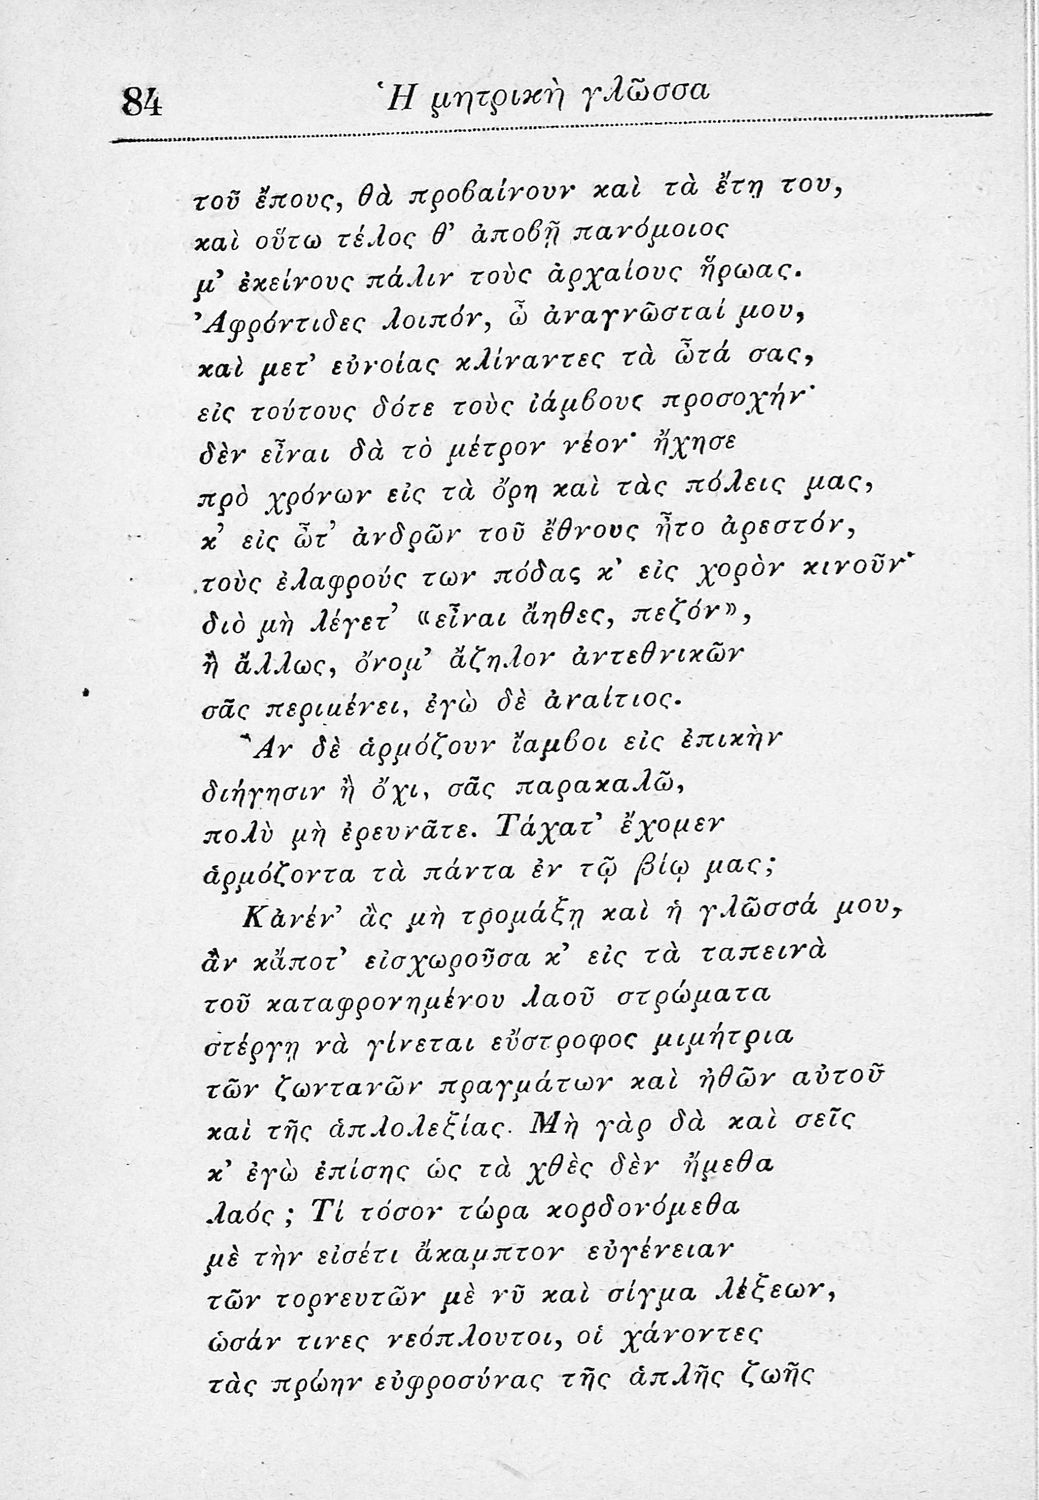 84
Ἡ μητρικὴ γλῶσσα
τοῦ ἔπους, θὰ προβαίνουν καὶ τὰ ἔτη του,
καὶ οὕτω τέλος θ' ἀποβῇ πανόμοιος
μ' ἐκείνους πάλιν τοὺς ἀρχαίους ἥρωας.
Ἀφρόντιδες λοιπόν, ὦ ἀναγνῶσταί μου,
καὶ μετ' εὐνοίας κλίναντες τὰ ὦτά σας,
εἰς τούτους δότε τοὺς ἰάμβους προσοχήν·
δὲν εἶναι δὰ τὸ μέτρον νέον· ἤχησε
πρὸ χρόνων εἰς τὰ ὄρη καὶ τὰς πόλεις μας,
κ' εἰς ὦτ' ἀνδρῶν τοῦ ἔθνους ἦτο ἀρεστόν,
τοὺς ἐλαφρούς των πόδας κ' εἰς χορὸν κινοῦν·
διὸ μὴ λέγετ' «εἶναι ἄηθες, πεζόν»,
ἢ ἄλλως, ὄνομ' ἄζηλον ἀντεθνικῶν
σᾶς περιμένει, ἐγὼ δὲ ἀναίτιος.
Ἂν δὲ ἁρμόζουν ἴαμβοι εἰς ἐπικὴν
διήγησιν ἢ ὄχι, σᾶς παρακαλῶ,
πολὺ μὴ ἐρευνᾶτε. Τάχατ' ἔχομεν
ἁρμόζοντα τὰ πάντα ἐν τῷ βίῳ μας;
Κἀνέν' ἂς μὴ τρομάξῃ καὶ ἡ γλῶσσά μου,
ἂν κἄποτ' εἰσχωροῦσα κ' εἰς τὰ ταπεινὰ
τοῦ καταφρονημένου λαοῦ στρώματα
στέργῃ νὰ γίνεται εὔστροφος μιμήτρια
τῶν ζωντανῶν πραγμάτων καὶ ἠθῶν αὐτοῦ
καὶ τῆς ἁπλολεξίας. Μὴ γὰρ δὰ καὶ σεῖς
κ' ἐγὼ ἐπίσης ὡς τὰ χθὲς δὲν ἤμεθα
λαός; Τί τόσον τώρα κορδονόμεθα
μὲ τὴν εἰσέτι ἄκαμπτον εὐγένειαν
τῶν τορνευτῶν μὲ νῦ καὶ σίγμα λέξεων,
ὡσάν τινες νεόπλουτοι, οἱ χάνοντες
τὰς πρώην εὐφροσύνας τῆς ἁπλῆς ζωῆς